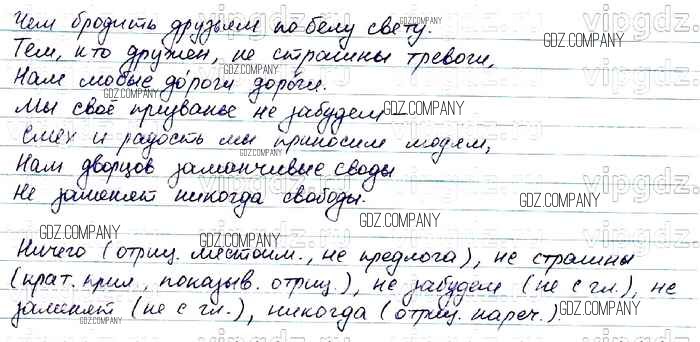 Чем бродить друзьям по белу свету.
Тем, кто дружен, не страшны тревоги,
Нам любые до́роги доро́ги.
Мы своё призванье не забудем –
Смех и радость мы приносим людям,
Нам дворцов заманчивые своды
Не заменят никогда свободы.
Ничего (отриц. местоим., не предлога), не страшны
(крат. прил., показыв. отриц.), не забудем (не с гл.), не
заменят (не с гл.), никогда (отриц. нареч.)
GDZ.COMPANY
vipgdz.ru